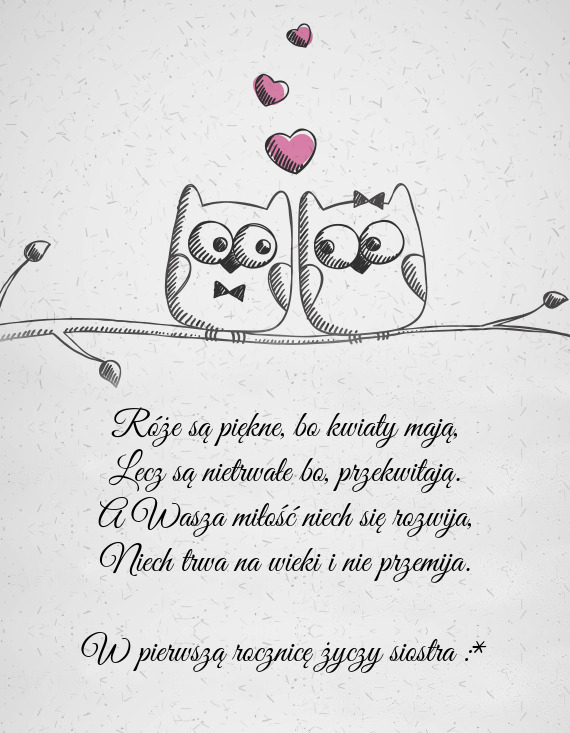 Róże są piękne, bo kwiaty mają,
Lecz są nietrwałe bo, przekwitają.
A Wasza miłość niech się rozwija,
Niech trwa na wieki i nie przemija.
W pierwszą rocznicę życzy siostra :*